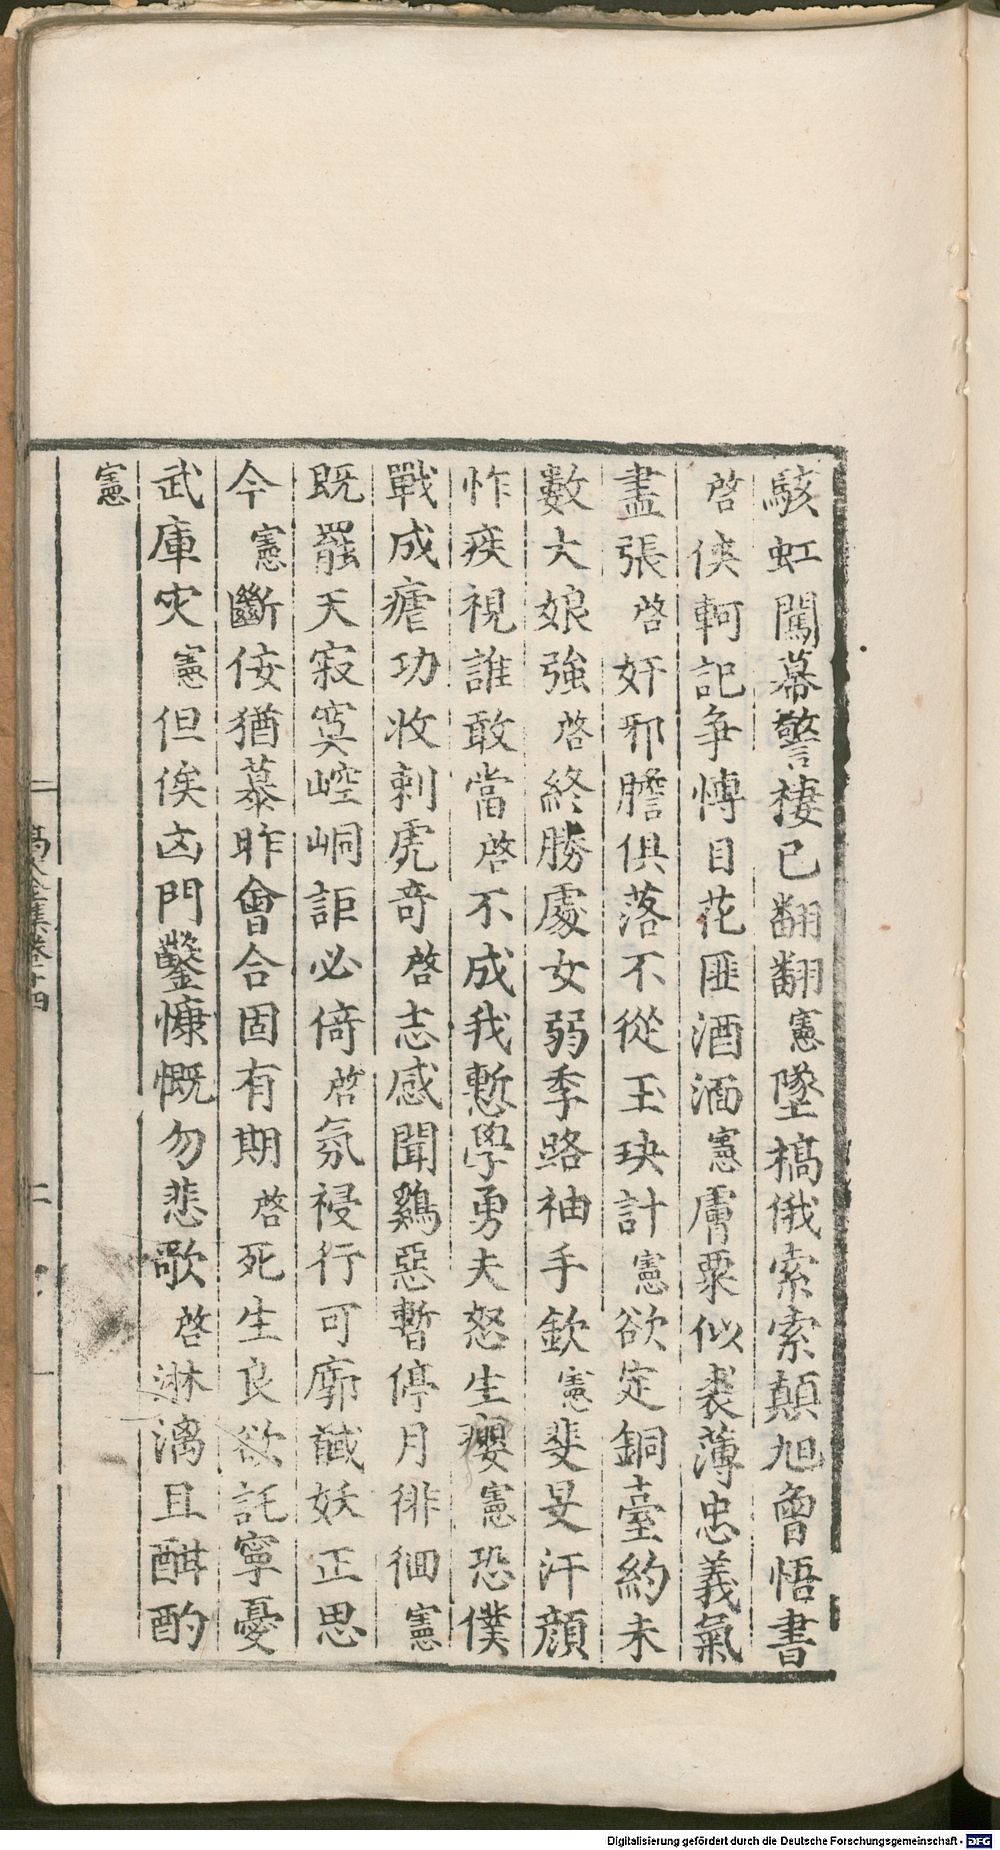 駭虹闖幕警棲已翻翻憲墜槁俄索索顛旭曾悟書
啓俠軻記爭愽目花匪酒湎憲膚粟似裘薄忠義氣
盡張啓奸邪膽俱落不從玉玦計憲欲定銅臺約未
數大娘強啓終勝處女弱季路袖手欽憲斐旻汗顔
怍疾視誰敢當啓不成我慙學勇夫怒生癭憲恐僕
戰成瘧功收剌虎竒啓志感聞鷄惡暫停月徘徊憲
既罷天寂寞崆峒詎必倚啓氛祲行可廓馘妖正思
今憲斷佞猶慕昨會合固有期啓死生良欲託寧憂
武庫灾憲但俟凶門鑿慷慨勿悲歌啓淋漓且酣酌
憲
高太全集卷十四
二
Digitalisierung gefördert durch die Deutsche Forschungsgemeinschaft - DFG